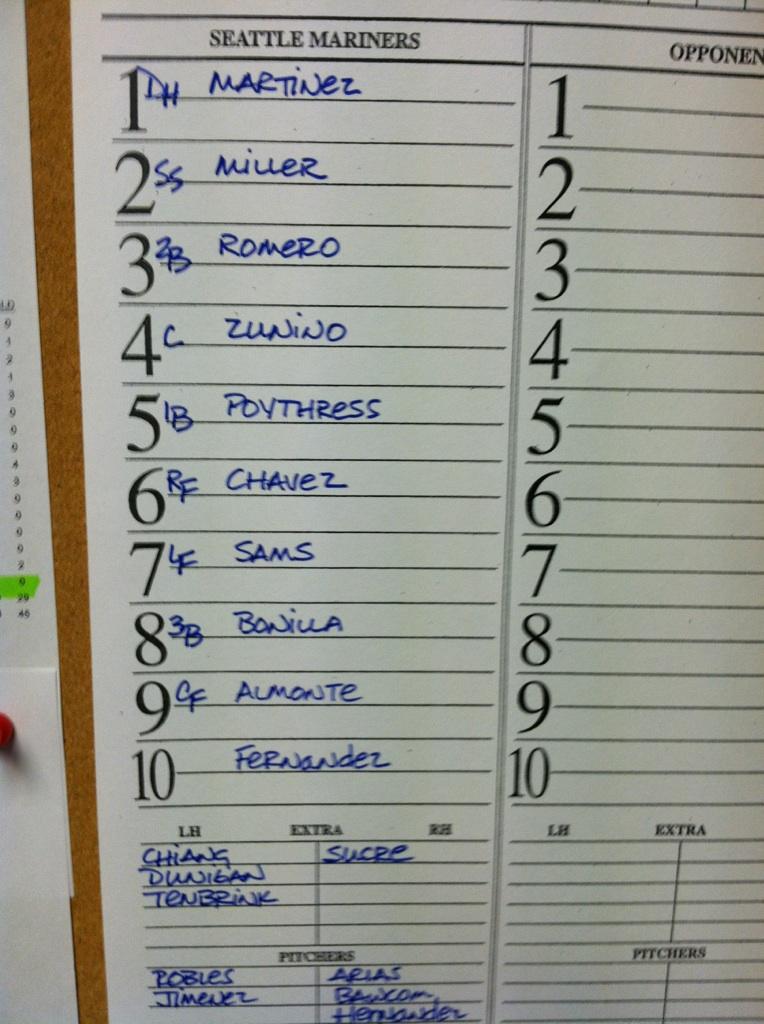 SEATTLE MARINERS
OPPONEN
1 DH MARTINEZ
2 SS MILLER
3 2B ROMERO
4 C ZUNINO
5 1B POYTHRESS
6 RF CHAVEZ
7 LF SAMS
8 3B BONILLA
9 CF ALMONTE
10 FERNANDEZ
1
2
3
4
5
6
7
8
9
10
LH EXTRA RH
CHIANG SUCRE
DUNIGAN
TENBRINK
PITCHERS
ROBLES ARIAS
JIMENEZ BAWCOM
HERNANDEZ
LH EXTRA
PITCHERS
9
29
46